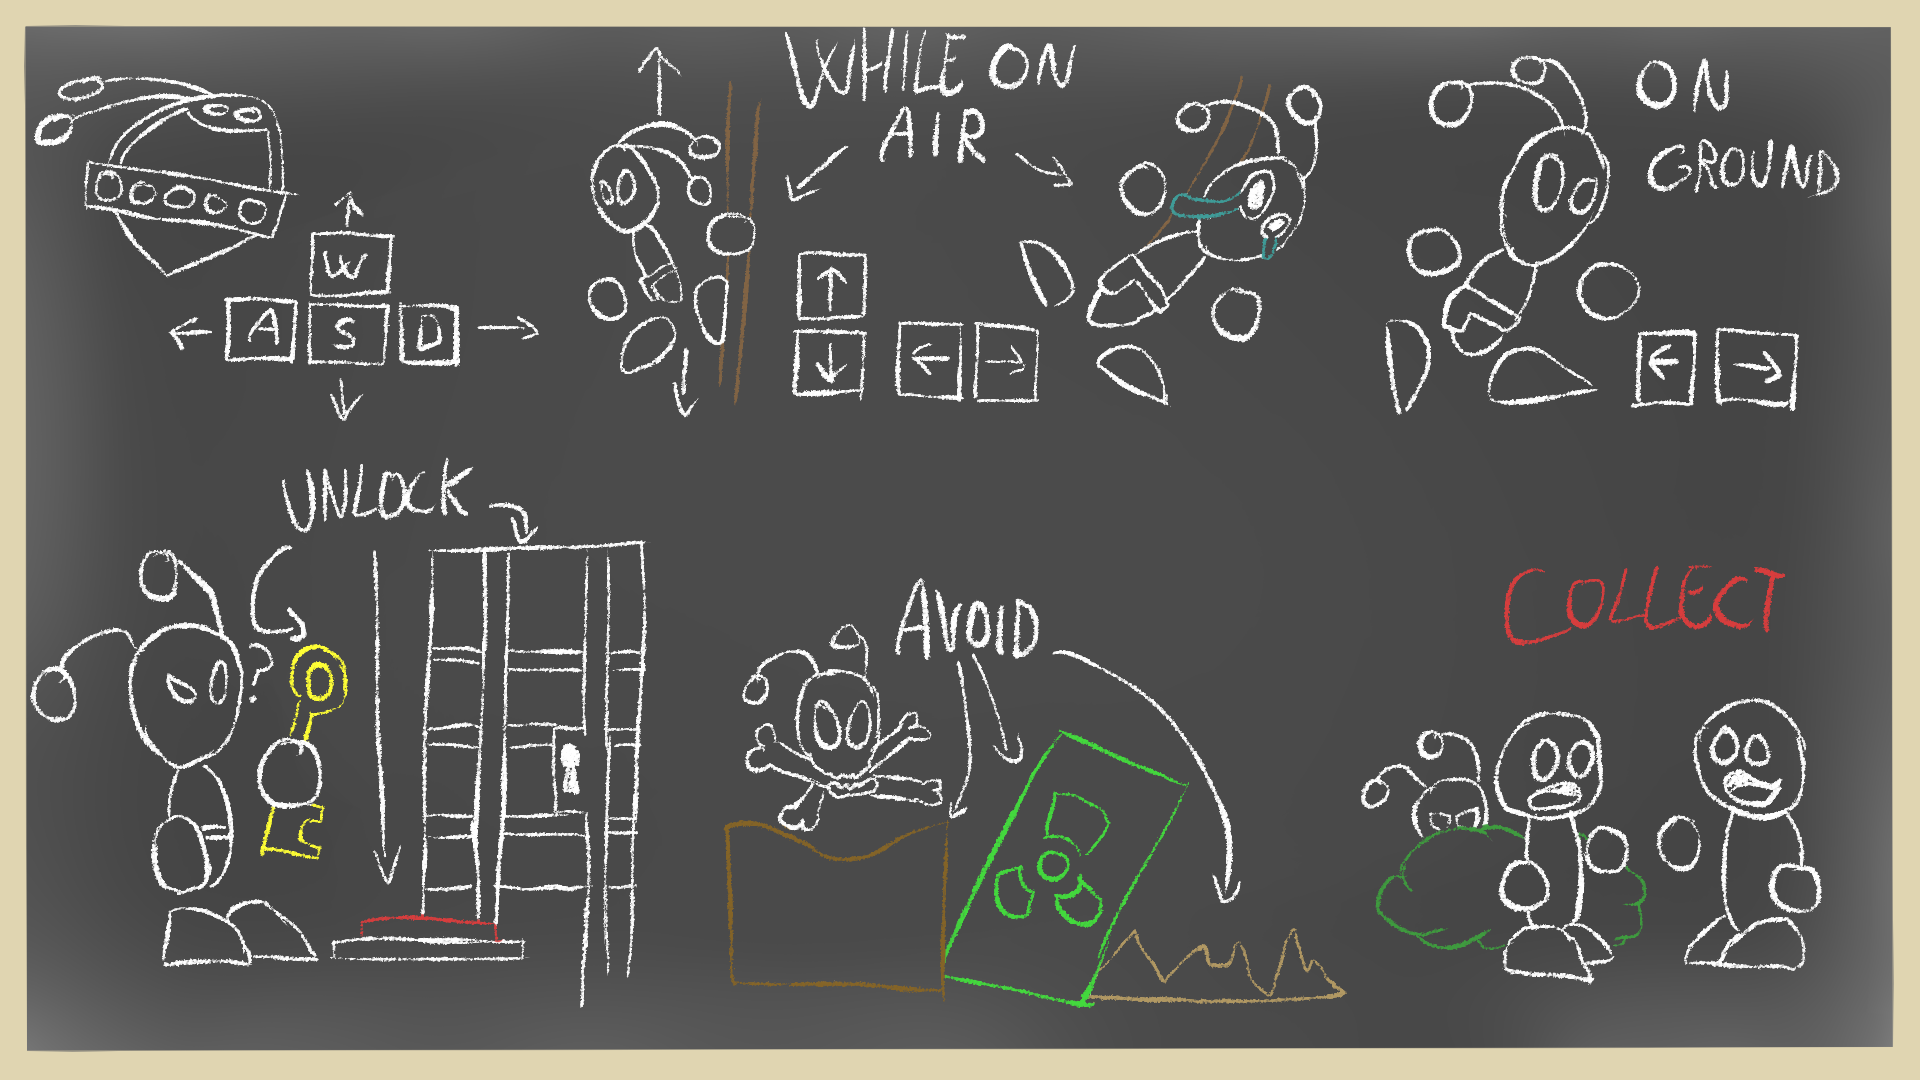 WHILE ON
AIR
ON
GROUND
W
A S D
UNLOCK
?
AVOID
COLLECT